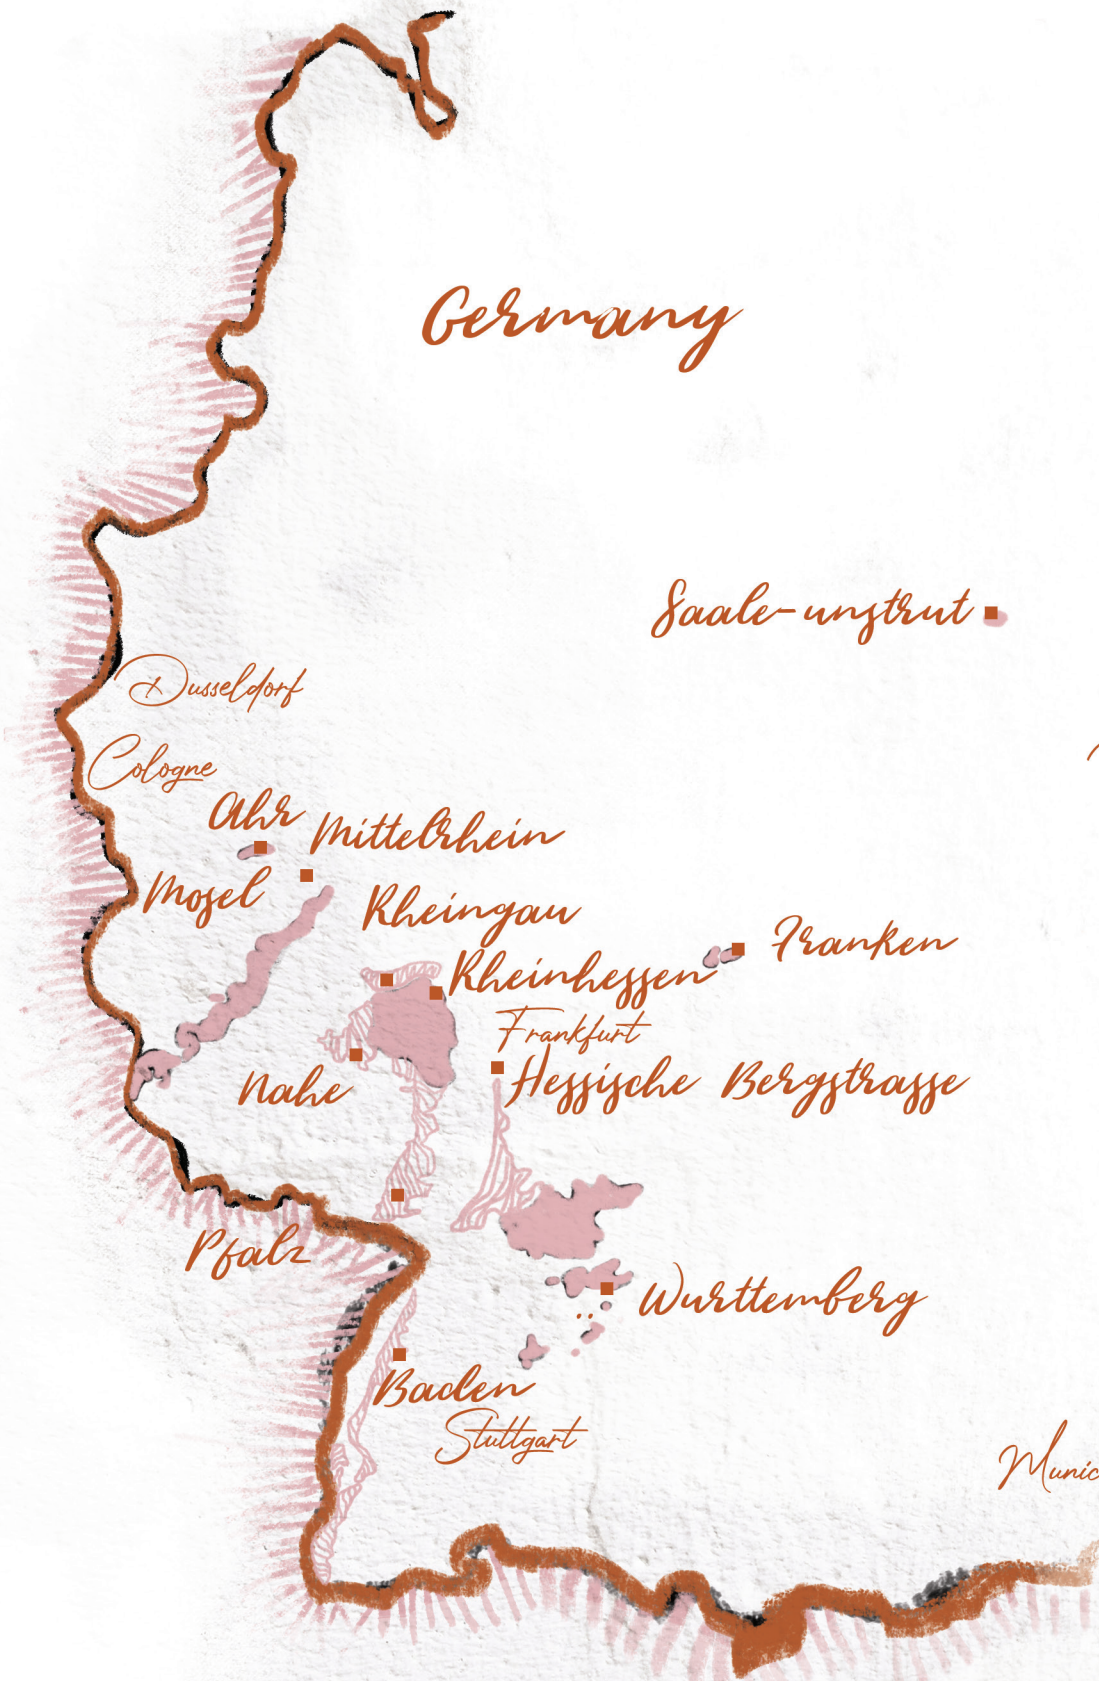 Germany
Saale-unstrut
Dusseldorf
Cologne
Ahr
Mittelrhein
Mosel
Rheingau
Franken
Rheinhessen
Frankfurt
Nahe
Hessische Bergstrasse
Pfalz
Wurttemberg
Baden
Stuttgart
Munic